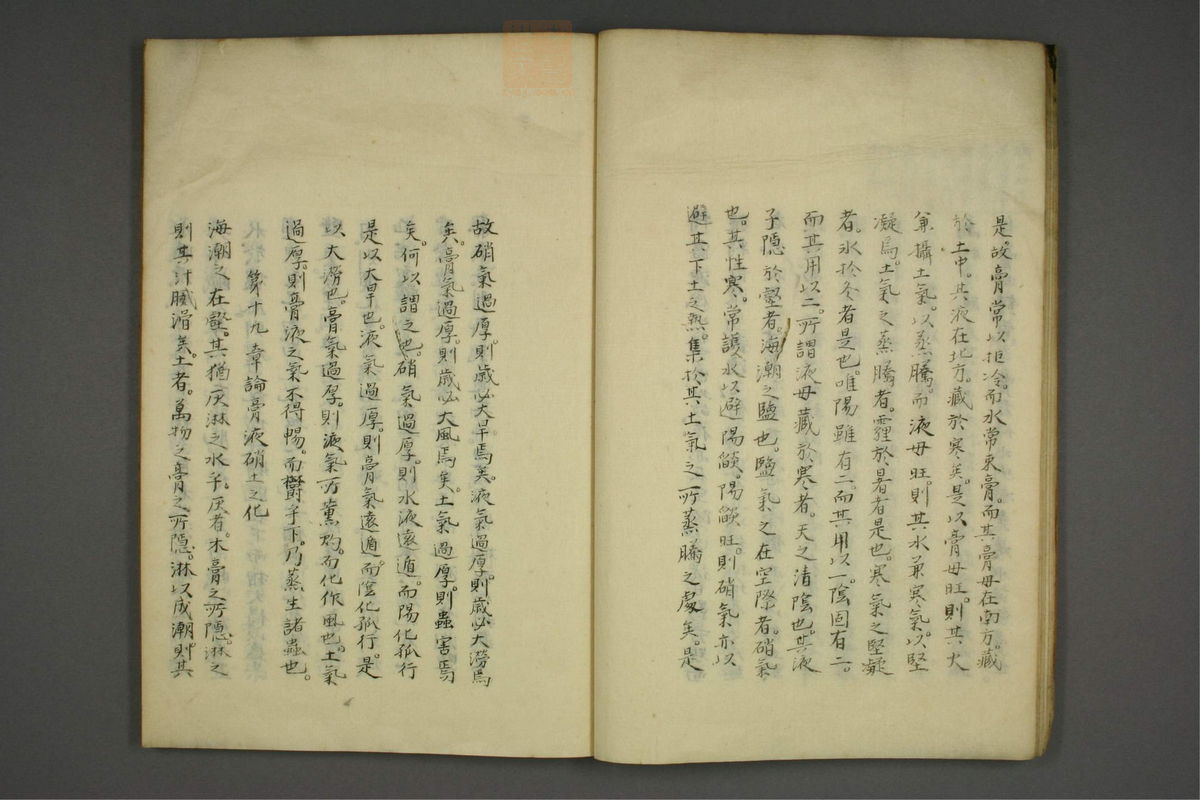 是故膏常以拒冷。而水常束膏。而其膏母在南方。藏
於土中。其液在北方。藏於寒矣。是以膏母旺。則其火
兼攝土氣。以蒸騰。而液母旺。則其水兼寒氣。以堅
凝焉。土氣之蒸騰者。霾於暑者是也。寒氣之堅凝
者。氷於冬者是也。唯陽雖有二。而其用以一。陰固有二。
而其用以二。所謂液母藏於寒者。天之清陰也。其液
子隱於壑者。海潮之鹽也。鹽氣之在空際者。硝氣
也。其性寒。常誘水以避陽燄。陽燄旺。則硝氣亦以
避其下土之熱。集於其土氣之所蒸騰之處矣。是
故硝氣過厚。則歲必大旱焉矣。液氣過厚。則歲必大澇焉
矣。膏氣過厚。則歲必大風焉矣。土氣過厚。則蟲害焉
矣。何以謂之也。硝氣過厚。則水液遠遁。而陽化孤行
是以大旱也。液氣過厚。則膏氣遠遁。而陰化孤行。是
以大澇也。膏氣過厚。則液氣所薰灼。而化作風也。土氣
過厚。則膏液之氣不得暢。而欝乎下。乃蒸生諸蟲也。
第十九章論膏液硝土之化
海潮之在壑。其猶灰淋之水乎。灰者。木膏之所隱。淋之
則其汁膩滑矣。土者。萬物之膏之所隱。淋以成潮。則其